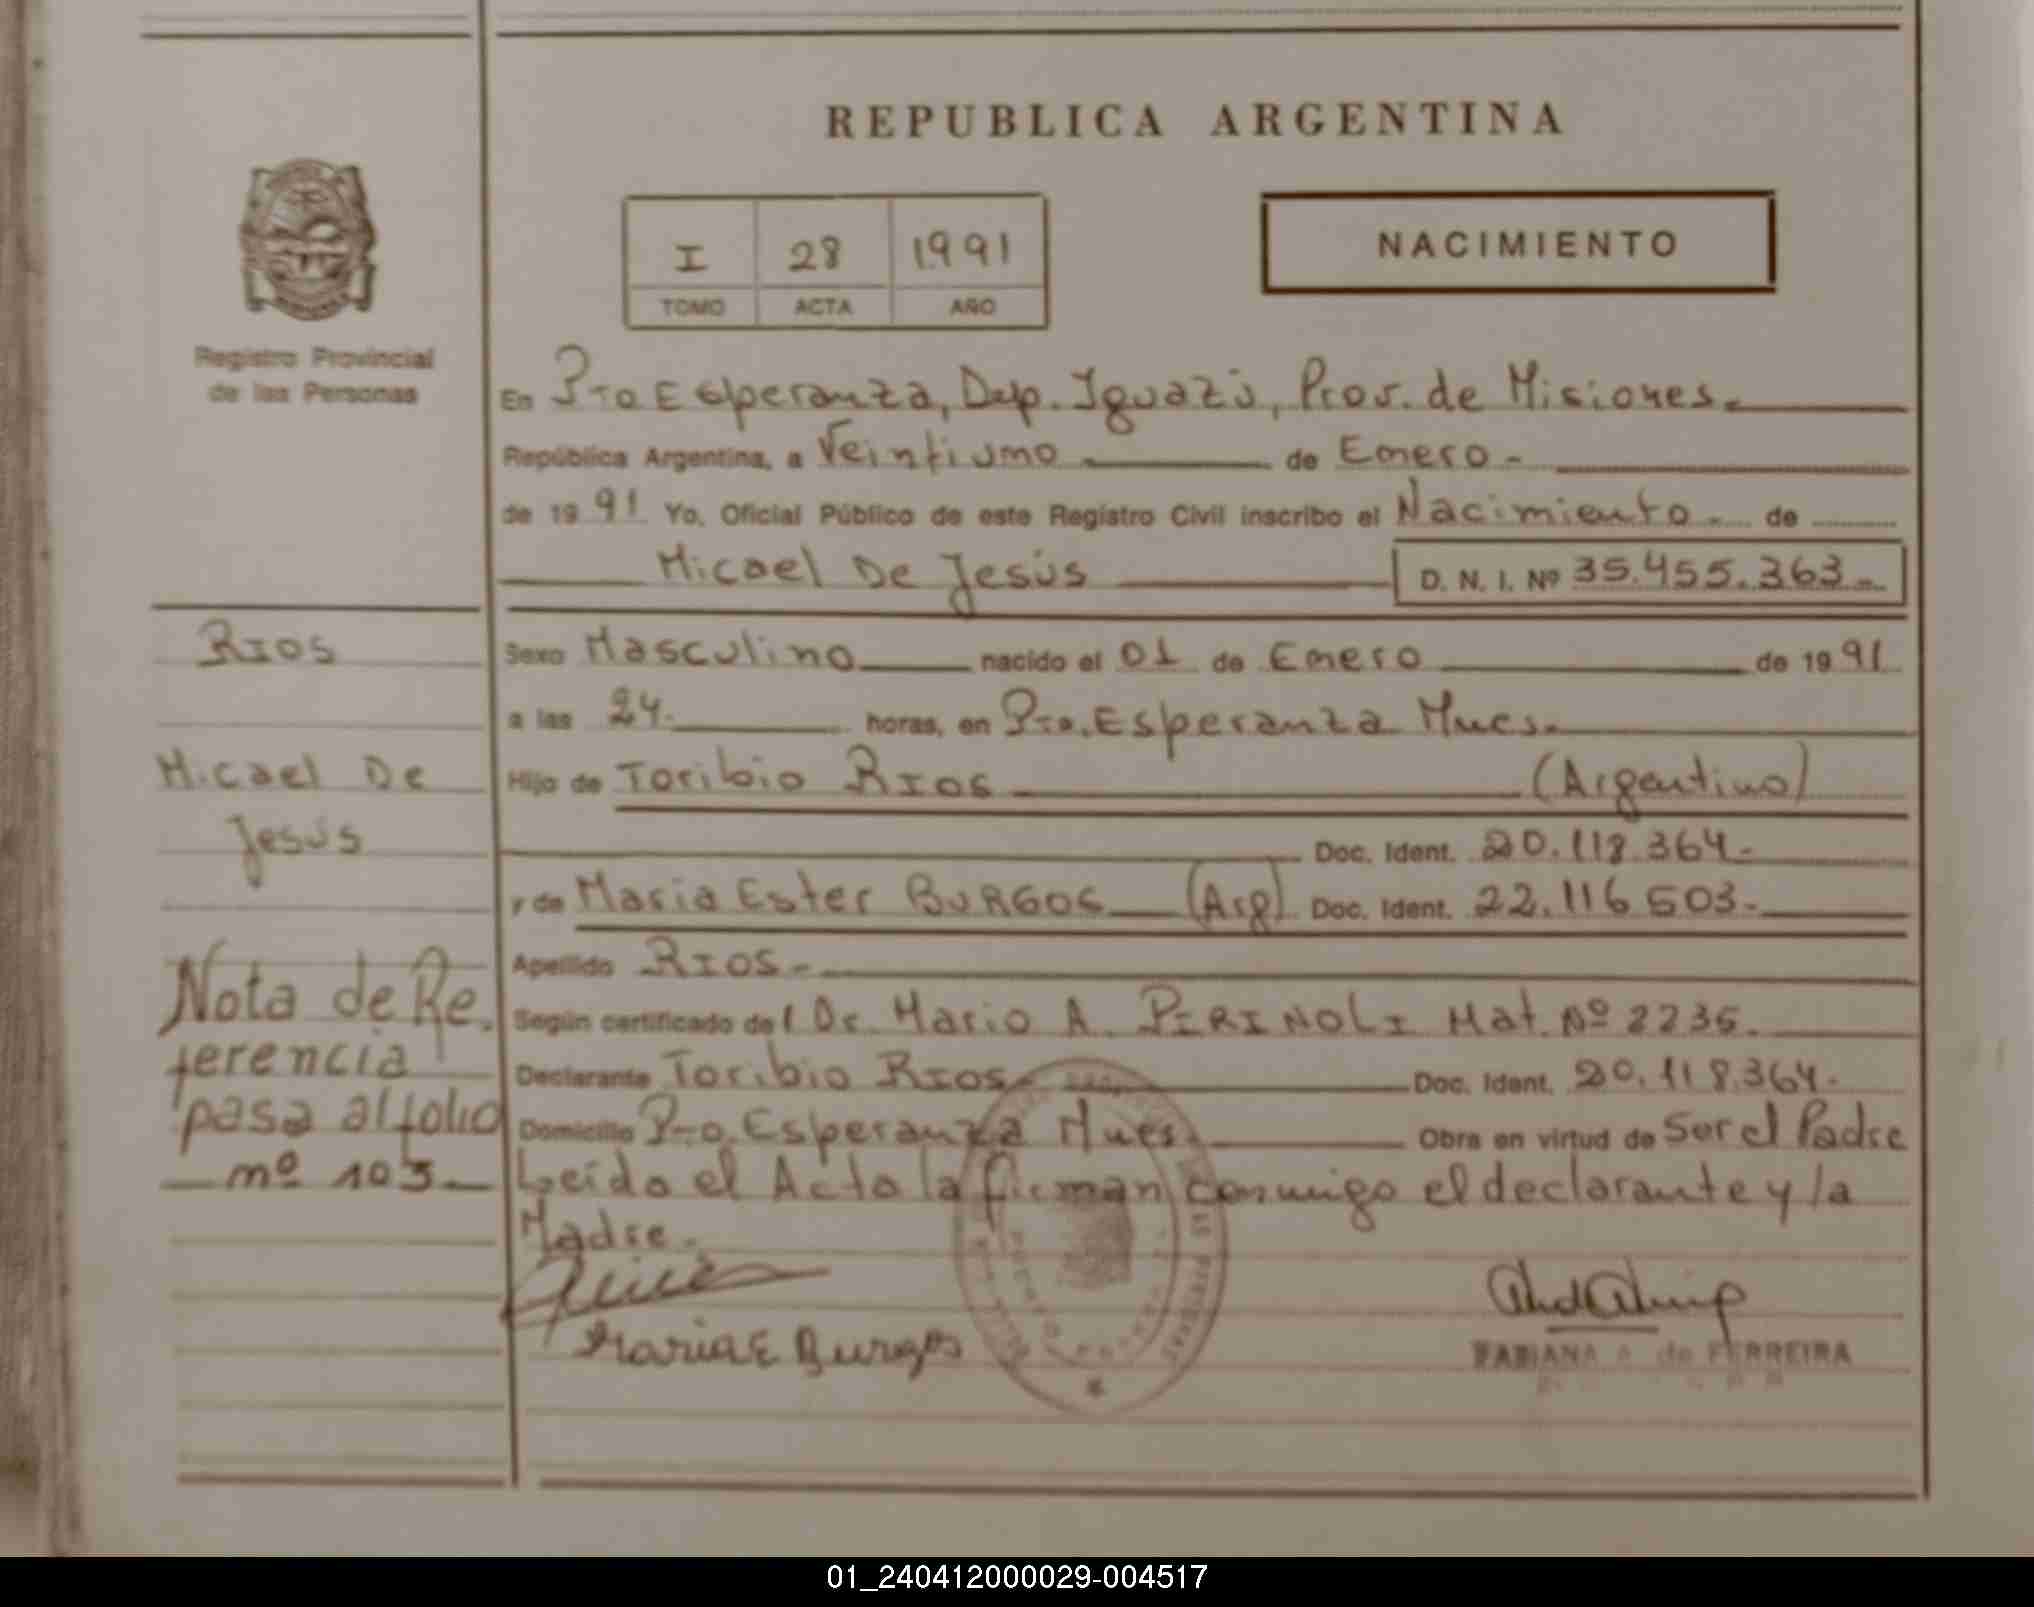 REPUBLICA ARGENTINA
I 28 1991
TOMO ACTA AÑO
NACIMIENTO
Registro Provincial
de las Personas
En Pto Esperanza, Dep. Iguazú, Prov. de Misiones.
República Argentina, a Veintiuno de Enero -
de 1991 Yo, Oficial Público de este Registro Civil inscribo el Nacimiento - de
Micael De Jesús D. N. I. Nº 35.455.363 -
RIOS
Micael De
Jesús
Nota de Re
ferencia
pasa al folio
nº 103
Sexo Masculino nacido el 01 de Enero de 1991
a las 24. horas, en Pto. Esperanza Mnes.
Hijo de Toribio RIOS (Argentino)
Doc. Ident. 20.118.364 -
y de Maria Ester BURGOS (Arg) Doc. Ident. 22.116 503 -
Apellido RIOS -
Según certificado del Dr. Mario A. PIRINOLI Mat. Nº 2235.
Declarante Toribio RIOS - Doc. Ident. 20.118.364 -
Domicilio Pto. Esperanza Mnes. Obra en virtud de Ser el Padre
Leído el Acta la firman conmigo el declarante y la
Madre -
Maria E Burgos
FABIANA A. de FERREIRA
01_240412000029-004517